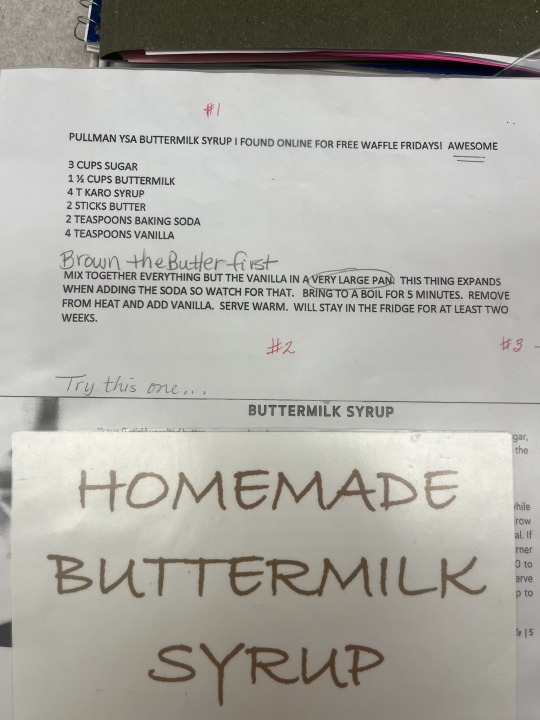 #1
PULLMAN YSA BUTTERMILK SYRUP I FOUND ONLINE FOR FREE WAFFLE FRIDAYS! AWESOME
3 CUPS SUGAR
1 ½ CUPS BUTTERMILK
4 T KARO SYRUP
2 STICKS BUTTER
2 TEASPOONS BAKING SODA
4 TEASPOONS VANILLA
Brown the Butter first
MIX TOGETHER EVERYTHING BUT THE VANILLA IN A VERY LARGE PAN. THIS THING EXPANDS
WHEN ADDING THE SODA SO WATCH FOR THAT. BRING TO A BOIL FOR 5 MINUTES. REMOVE
FROM HEAT AND ADD VANILLA. SERVE WARM. WILL STAY IN THE FRIDGE FOR AT LEAST TWO
WEEKS.
#2 #3 -
Try this one...
BUTTERMILK SYRUP
gar,
the
HOMEMADE
BUTTERMILK
SYRUP
hile
row
al. If
rner
0 to
erve
p to
| 5